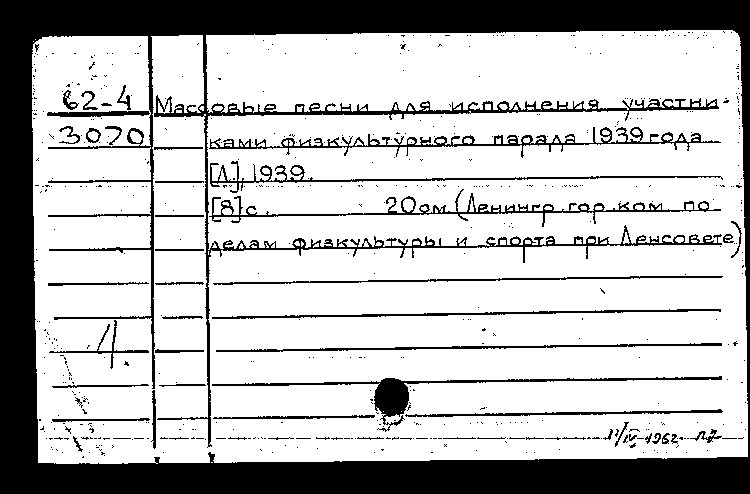 62-4 Массовые песни для исполнения участни-
3070 ками физкультурного парада 1939 года
[Л], 1939.
[8] с. 20 см (Ленингр. гор. ком. по
делам физкультуры и спорта при Ленсовете)
1962